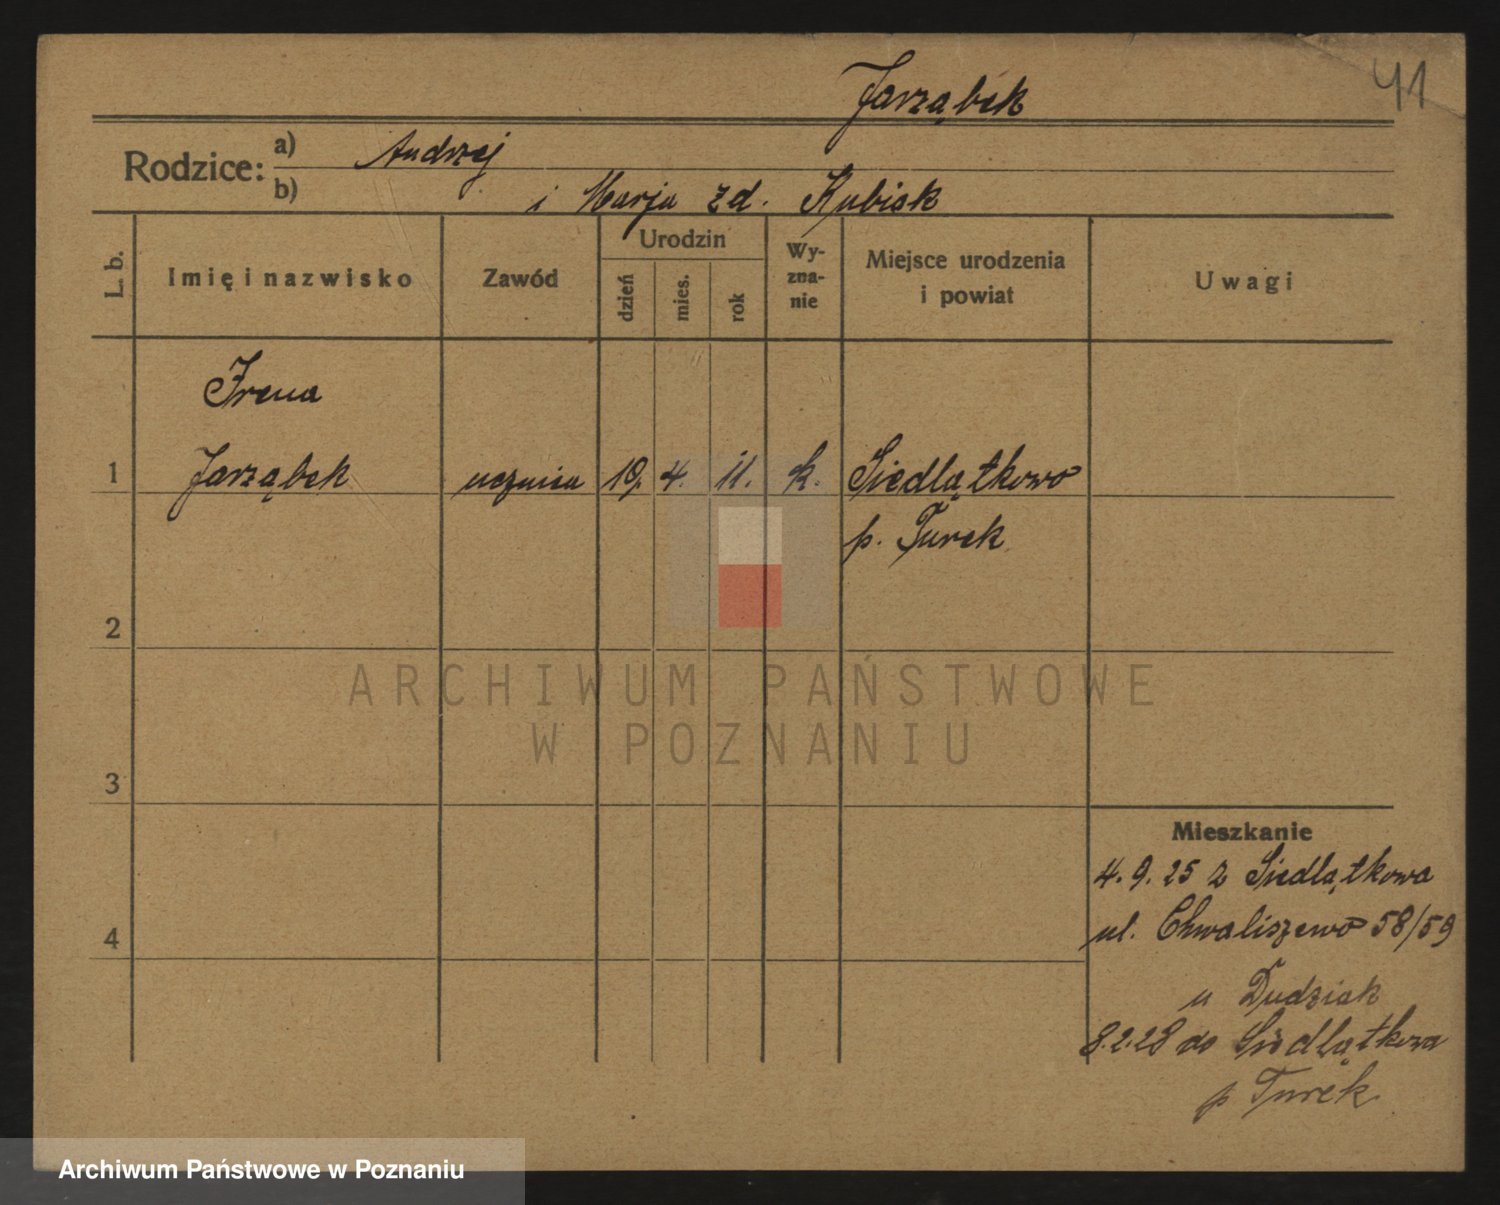 41
Jarząbek
Rodzice: a) Andrzej
b) i Marja zd. Kubiak
L. b. Imię i nazwisko Zawód Urodzin dzień mies. rok Wyznanie Miejsce urodzenia i powiat Uwagi
Irena
1 Jarząbek uczenica 19. 4. 11. k. Siedlątkowo
p. Turek
2
ARCHIWUM PAŃSTWOWE
W POZNANIU
3
Mieszkanie
4. 9. 25 z Siedlątkowa
ul. Chwaliszewo 58/59
4
u Dudziak
8.2.28 do Siedlątkowa
p Turek
Archiwum Państwowe w Poznaniu